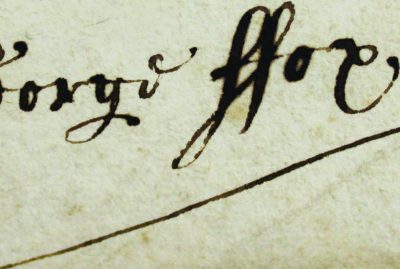 George ffox